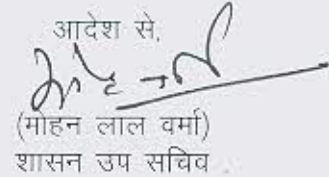 आदेश से,
(मोहन लाल वर्मा)
शासन उप सचिव